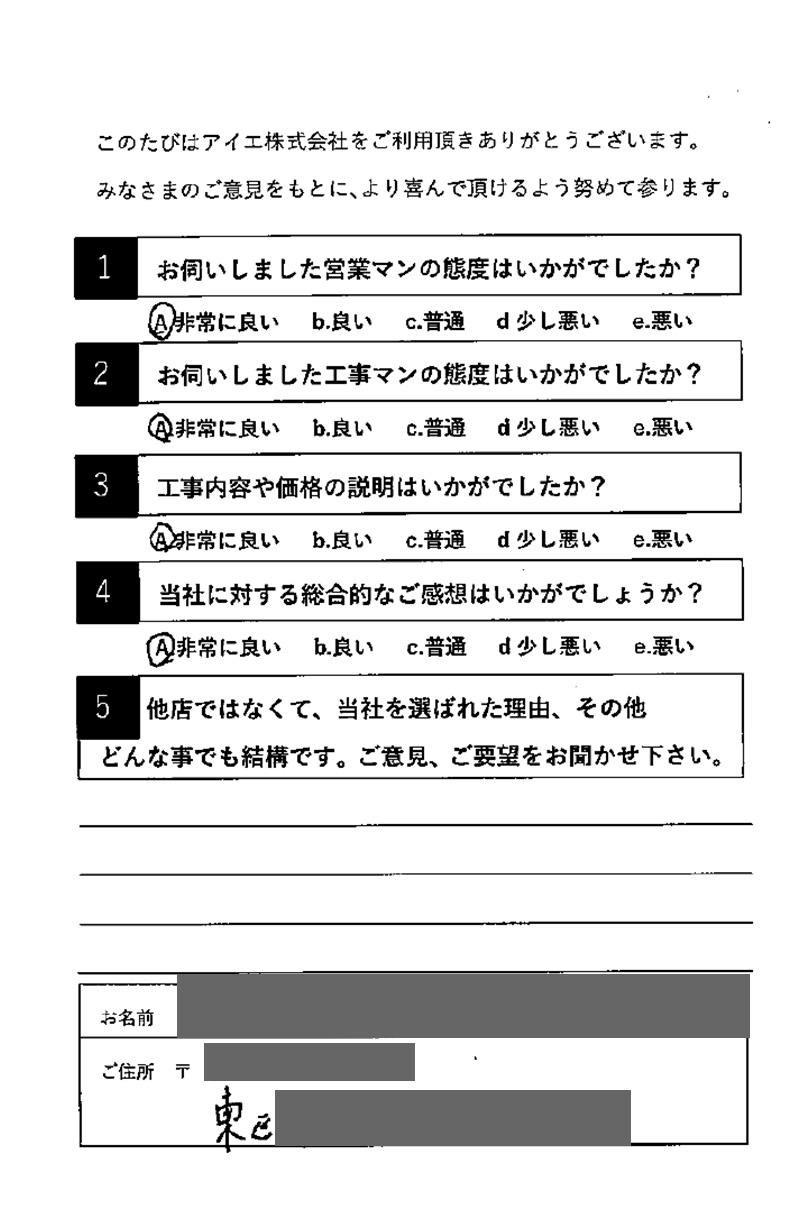 このたびはアイエ株式会社をご利用頂きありがとうございます。
みなさまのご意見をもとに、より喜んで頂けるよう努めて参ります。
1 お伺いしました営業マンの態度はいかがでしたか？
A 非常に良い b.良い c.普通 d 少し悪い e.悪い
2 お伺いしました工事マンの態度はいかがでしたか？
A 非常に良い b.良い c.普通 d 少し悪い e.悪い
3 工事内容や価格の説明はいかがでしたか？
A 非常に良い b.良い c.普通 d 少し悪い e.悪い
4 当社に対する総合的なご感想はいかがでしょうか？
A 非常に良い b.良い c.普通 d 少し悪い e.悪い
5 他店ではなくて、当社を選ばれた理由、その他
どんな事でも結構です。ご意見、ご要望をお聞かせ下さい。
お名前
ご住所 〒
東区